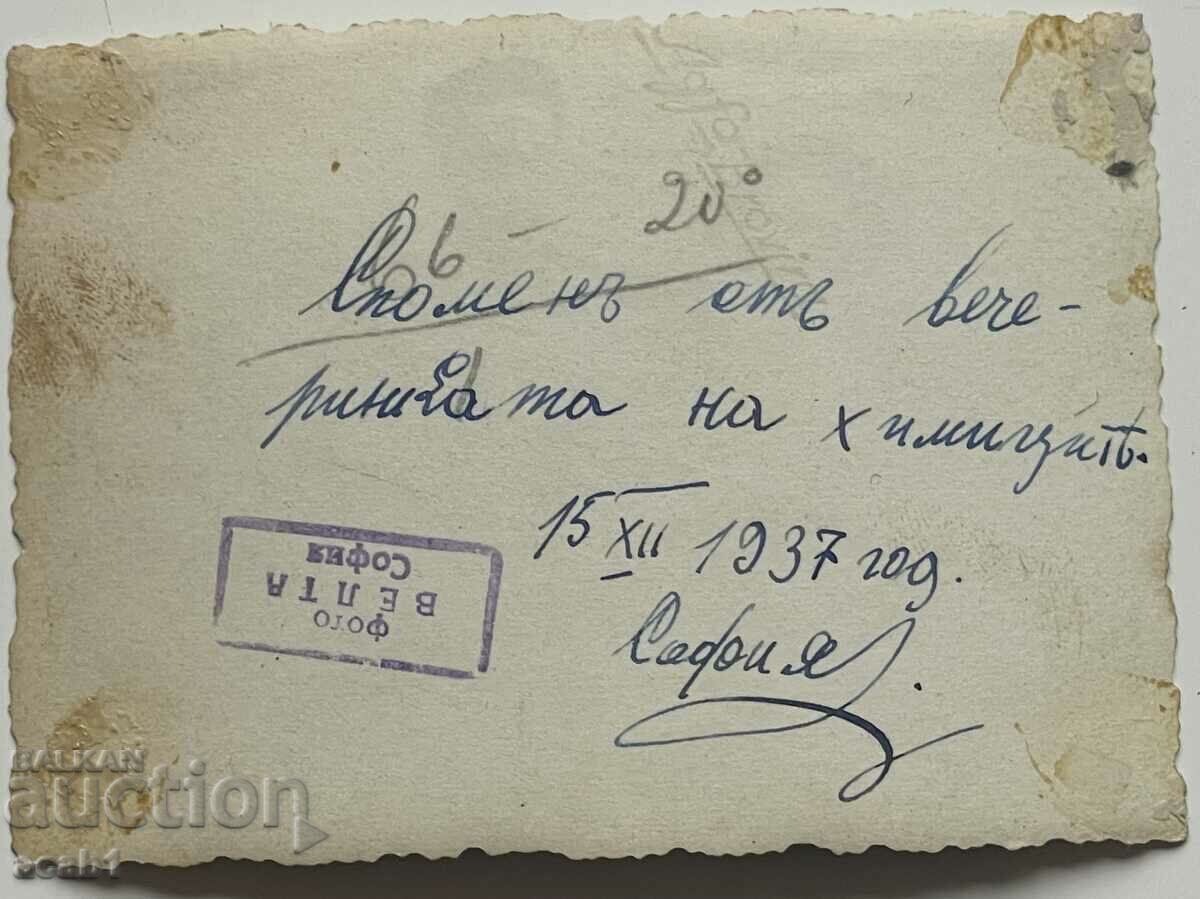 20°
Споменъ отъ вече-
ринката на химицитѣ.
15 XII 1937 год.
София
фото
ВЕЛТА
София
BALKAN
auction
acab1